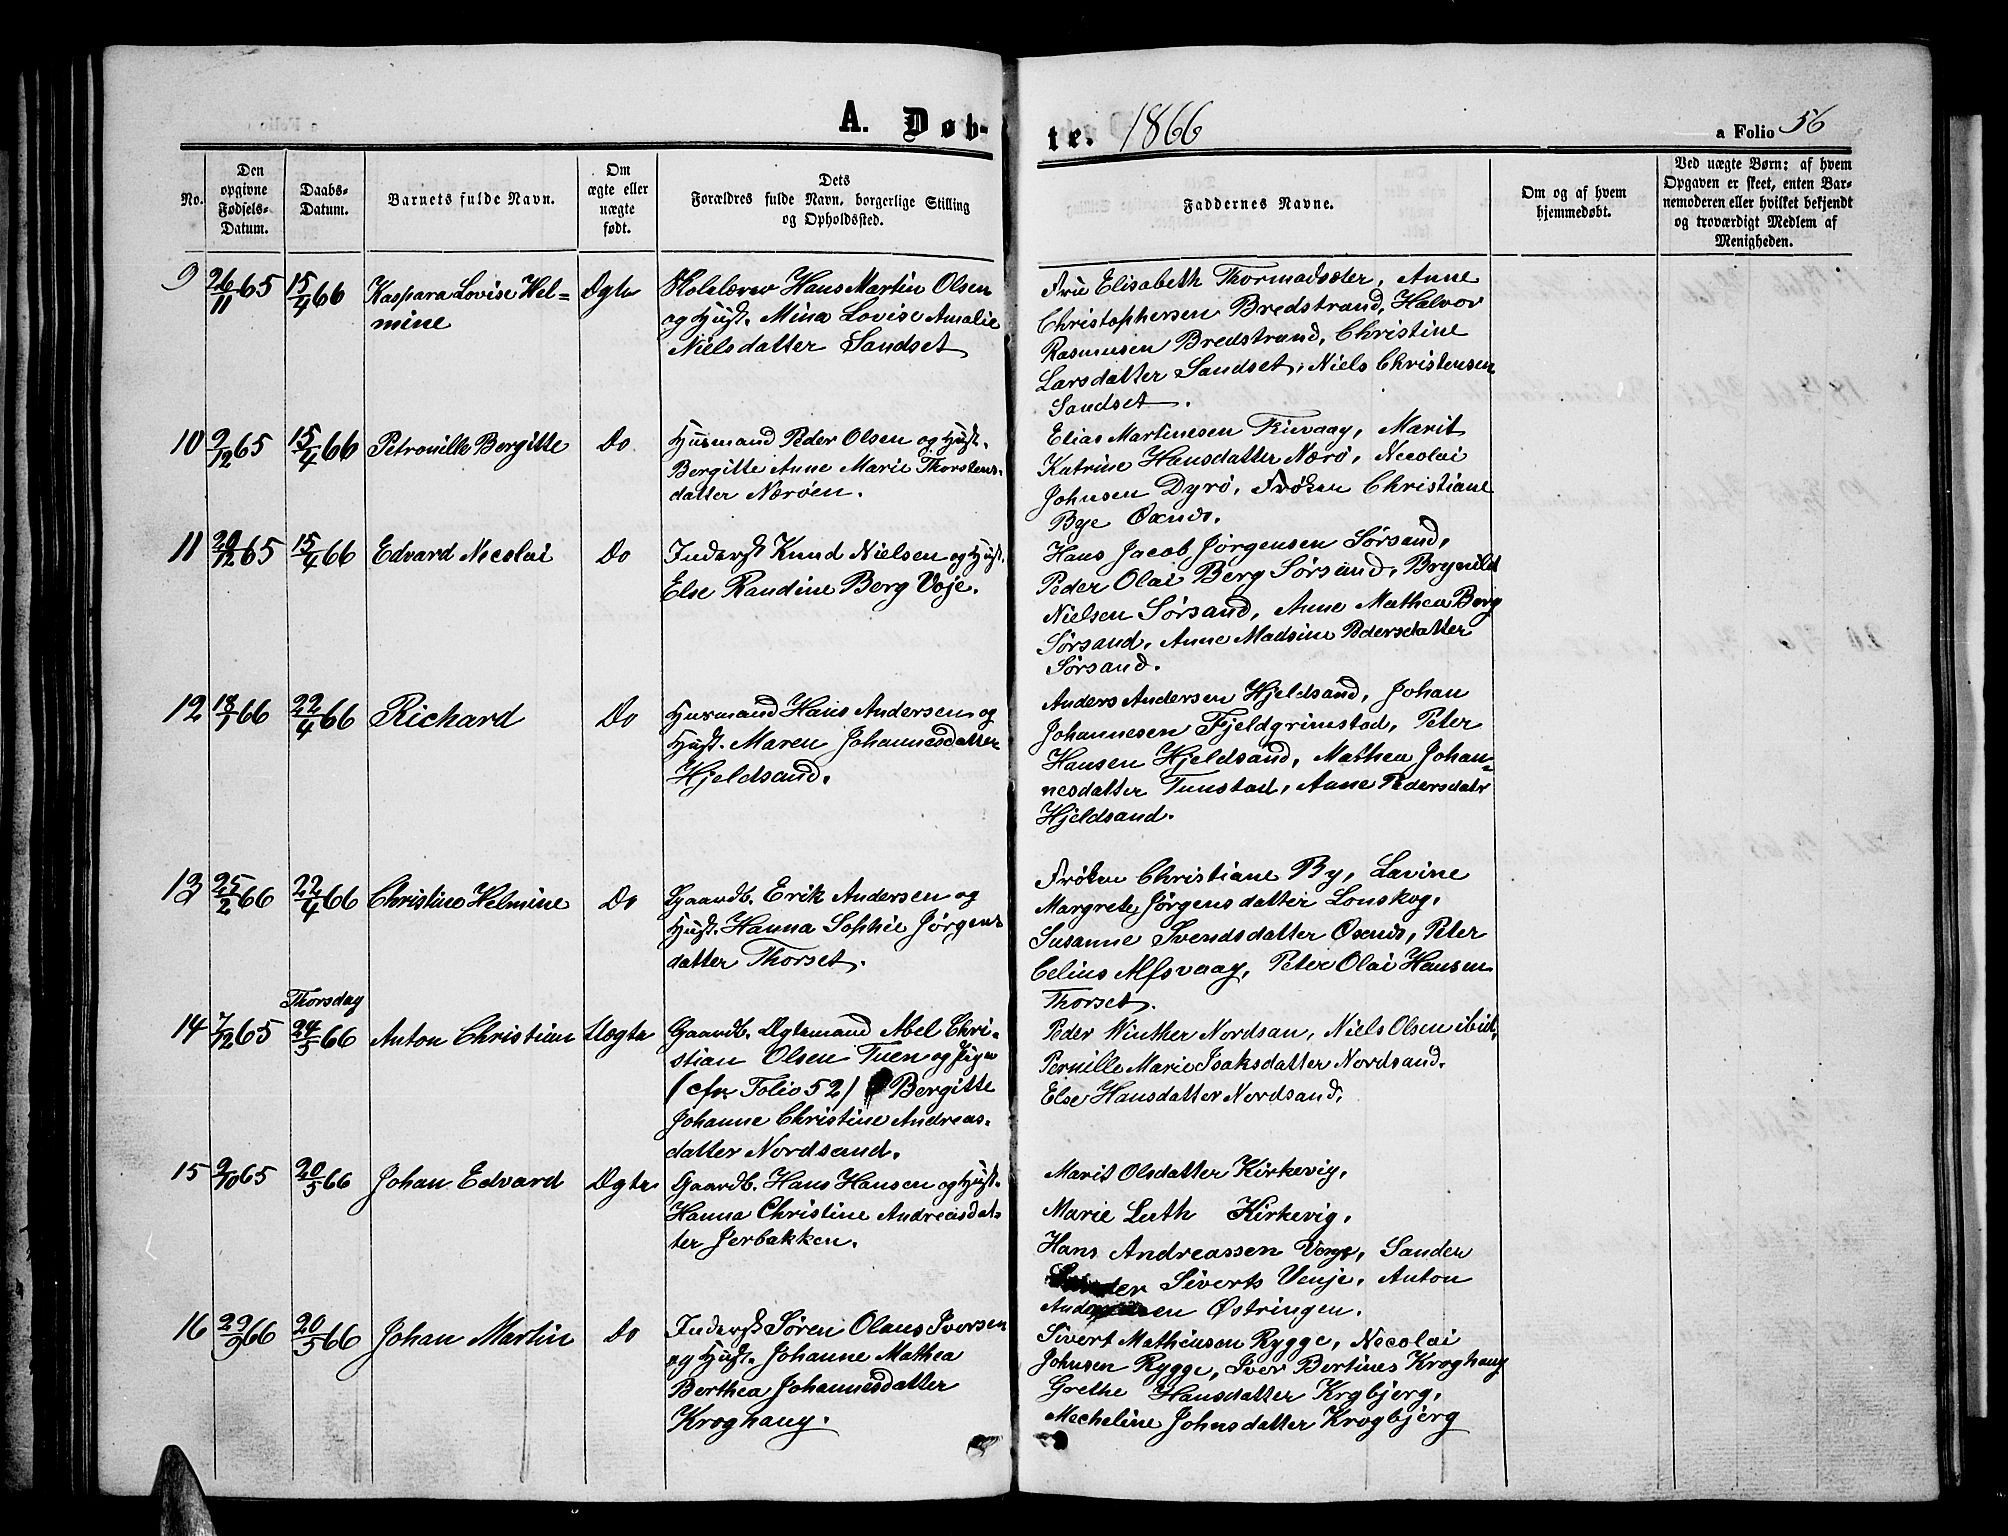 A. Døb-
te. 1866
a Folio 56
No.
Den
opgivne
Fødsels-
Datum.
Daabs-
Datum.
Barnets fulde Navn.
Om
ægte eller
uægte
født.
Dets
Forældres fulde Navn, borgerlige Stilling
og Opholdssted.
Faddernes Navne.
Om og af hvem
hjemmedøbt.
Ved uægte Børn: af hvem
Opgaven er skeet, enten Bar-
nemoderen eller hvilket bekjendt
og troværdigt Medlem af
Menigheden.
9 26/11 65 15/4 66 Kaspara Lovise Hel=
mine
Ægte
Skolelærer Hans Martin Olsen
og Hust. Mina Lovise Amalie
Nielsdatter Sandset
Fru Elisabeth Thormodsæter, Anne
Christophersen Bredstrand, Halvor
Rasmusen Bredstrand, Christine
Larsdatter Sandset, Niels Christensen
Sandset.
10 9/12 65 15/4 66 Petronille Bergitte Do
Husmand Peder Olsen og Hust.
Bergitte Anne Marie Thorstens-
datter Nærøen.
Elias Martinesen, Marit
Katrine Hansdatter Nærö, Necolai
Johnsen Dyrö, Frøken Christiane
Bye Öxnes.
11 20/12 65 15/4 66 Edvard Necolai Do
Inderst Knud Nielsen og Hust.
Else Randine Berg Voje.
Hans Jacob Jørgensen Sørsand,
Peder Olai Berg Sørsand, Brynild
Nielsen Sørsand, Anne Mathea Berg
Sørsand, Anne Madsine Pedersdatter
Sørsand.
12 18/1 66 22/4 66 Richard Do
Husmand Hans Andersen og
Hust. Maren Johannesdatter
Hjeldsand.
Anders Andersen Hjeldsand, Johan
Johannesen Fjeldgrimstad, Peter
Hansen Hjeldsand, Mathea Johan=
nesdatter Tunstad, Anne Pedersdatr
Hjeldsand.
13 25/2 66 22/4 66 Christine Helmine Do
Gaardb. Erik Andersen og
Hust. Hanna Sophie Jørgens-
datter Thorset.
Frøken Christiane By, Lavine
Margrete Jørgensdatter Lonskog,
Susanne Svendsdatter Öxnes, Peter
Celius Alfsvaag, Peter Olai Hansen
Thorset.
Thorsdag
14 7/12 65 24/5 66 Anton Christian Uægte
Gaardb. Ægtemand Abel Chri-
stian Olsen Tuen og Pige
(cfr. Folio 52) Bergitte
Johanne Christine Andreas-
datter Nordsand.
Peder Winther Nordsan, Niels Olsen ibid,
Pernille Marie Isaksdatter Nordsand.
Else Hansdatter Nordsand.
15 9/10 65 20/5 66 Johan Edvard Ægte
Gaardb. Hans Hansen og Hust.
Hanna Christine Andreasdat-
ter Jerbakken.
Marit Olsdatter Kirkevig,
Marie Luth Kirkevig,
Hans Andreassen Vorge, Sander
Siverts Venje, Anton
Östringen.
16 29/9 66 20/5 66 Johan Martin Do
Inderst Søren Olaus Iversen
og Hust. Johanne Mathea
Berthea Johannesdatter
Kroghaug.
Sivert Mathiusen Rygge, Necolai
Johnsen Rygge, Iver Bertines Kroghaug
Grethe Hansdatter Krgbjerg,
Mecheline Johnsdatter Krogbjerg